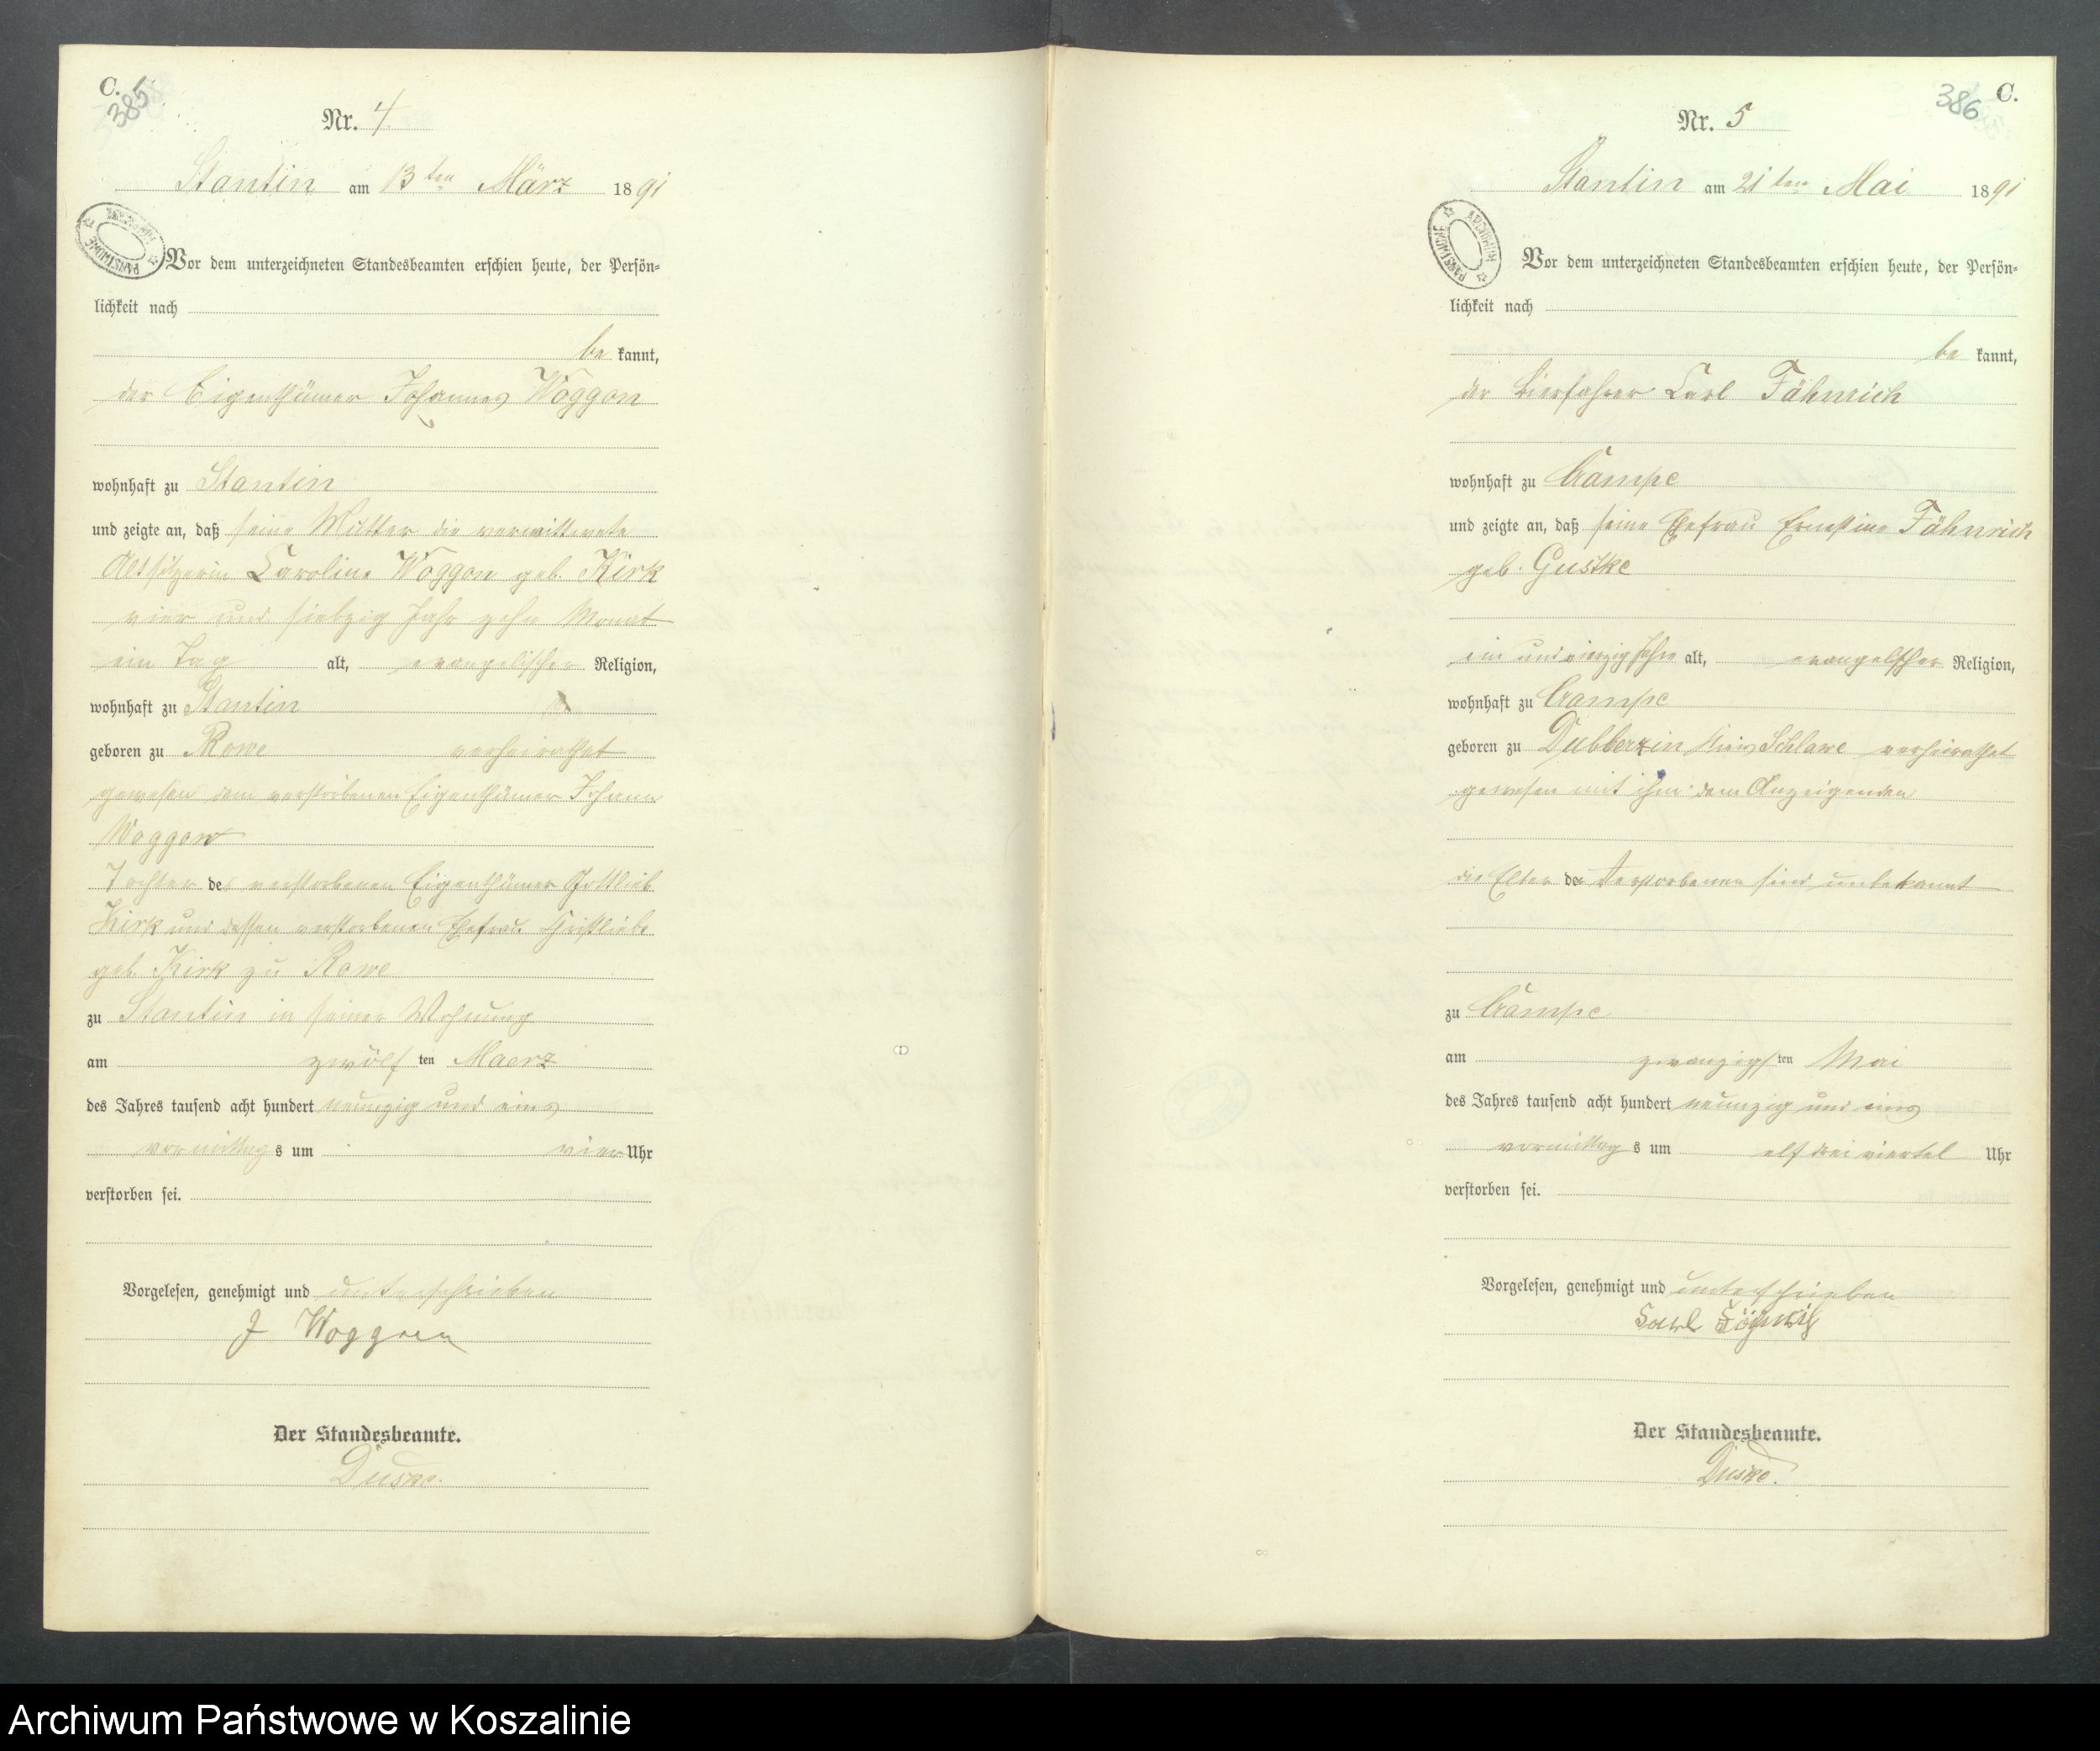 C.
385
Nr. 4
Stantin am 13ten März 1891
Vor dem unterzeichneten Standesbeamten erschien heute, der Persön-
lichkeit nach
be kannt,
der Eigenthümer Johannes Woggon
wohnhaft zu Stantin
und zeigte an, daß seine Mutter die verwittwete
Altsitzerin Caroline Woggon geb. Kirk
vier und siebzig Jahr zehn Monat
ein Tag alt, evangelischer Religion,
wohnhaft zu Stantin
geboren zu Rowe verheirathet
gewesen dem verstorbenen Eigenthümer Johann
Woggon
Tochter des verstorbenen Eigenthümer Gottlieb
Kirk und dessen verstorbenen Ehefrau Christliebe
geb. Kirk zu Rowe
zu Stantin in seiner Wohnung
am zwölf ten Maerz
des Jahres tausend acht hundert neunzig und eins
vormittag s um vier Uhr
verstorben sei.
Vorgelesen, genehmigt und unterschrieben
J Woggon
Der Standesbeamte.
Duske.
386
C.
Nr. 5
Stantin am 21ten Mai 1891
PAŃSTWOWE ARCHIWUM
Vor dem unterzeichneten Standesbeamten erschien heute, der Persön-
lichkeit nach
be kannt,
der Bierfahrer Carl Fähnrich
wohnhaft zu Gampe
und zeigte an, daß seine Ehefrau Ernestine Fähnrich
geb. Gustke
ein und vierzig Jahre alt, evangelscher Religion,
wohnhaft zu Gampe
geboren zu Dubberzin Kreis Schlawe verheirathet
gewesen mit ihm dem Anzeigenden
die Elter der Verstorbenen sind unbekannt
zu Gampe
am zwanzigs ten Mai
des Jahres tausend acht hundert neunzig und eins
vormittag s um elf drei viertel Uhr
verstorben sei.
Vorgelesen, genehmigt und unterschrieben
Carl
Der Standesbeamte.
Duske.
Archiwum Państwowe w Koszalinie